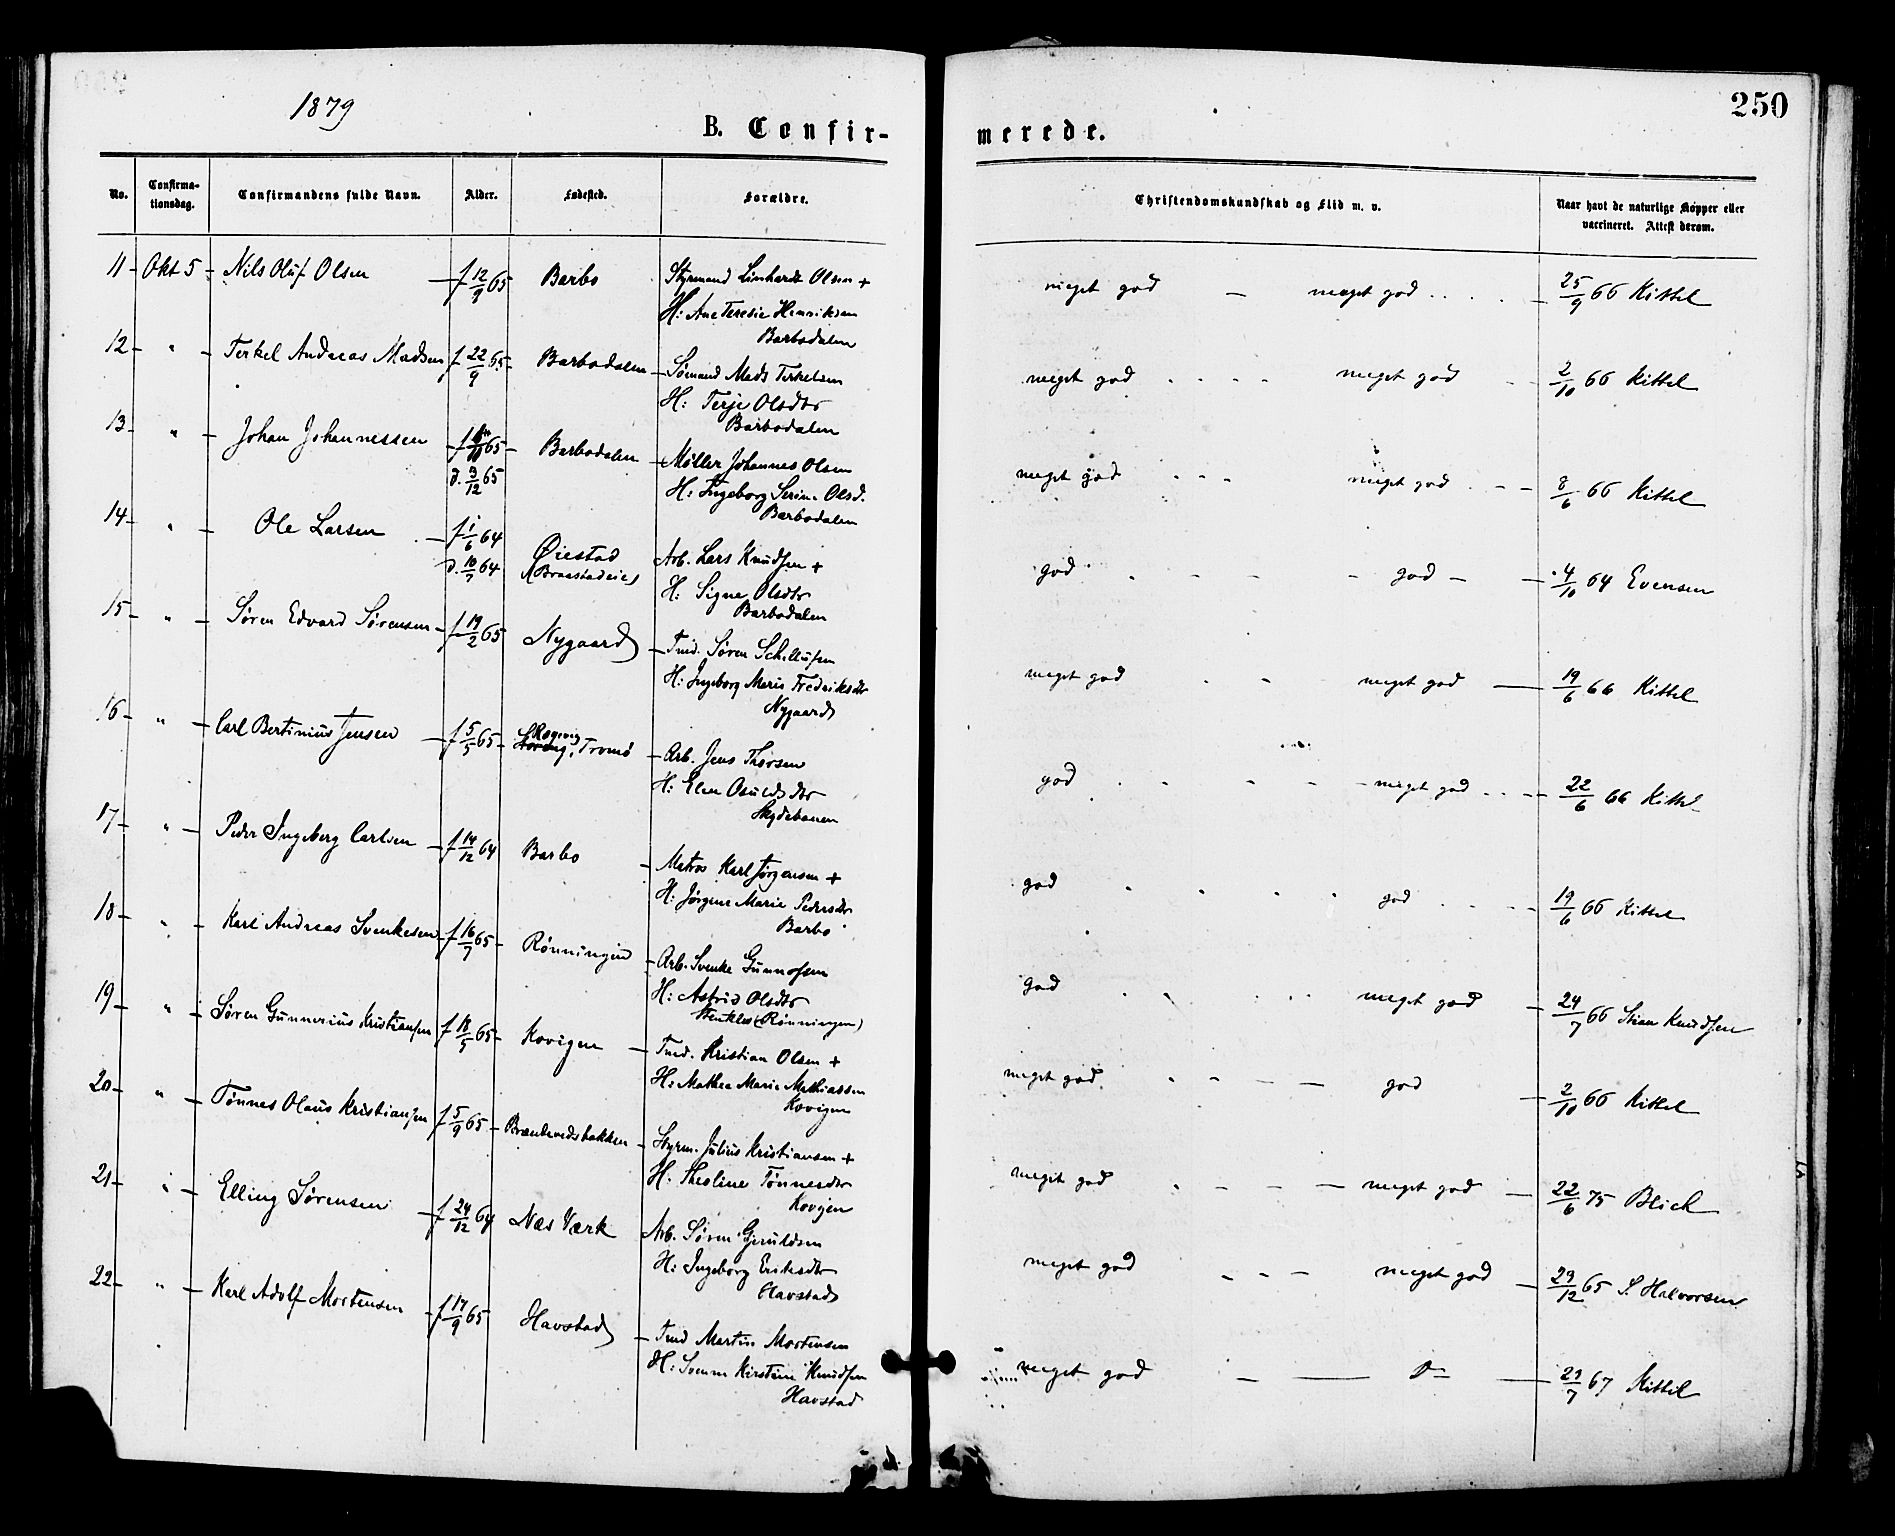 1879
250
B. Confir-
merede.
No.
Confirma-
tionsdag.
Confirmandens fulde Navn.
Alder.
Fødested.
Forældre.
Christendomskundskab og Flid m. v.
Naar havt de naturlige Kopper eller
vaccineret. Attest derom.
11 - Okt 5 - Nils Oluf Olsen - f 12/9 65 Barbo Styrmand Linhardt Olsen + meget god - meget god 25/9 66 Kittel
H: Ane Teresie Henriksen
Barbodalen
12 - " - Terkel Andreas Madsen f 22/9 65 - Barbodalen - Sømand Mads Terkelsen meget god meget god 2/10 66 Kittel
H: Terje Olsdtr
Barbodalen
13 - " - Johan Johannessen - f 65 - Barbodalen - Møller Johannes Olsen meget god meget god 8/6 66 Kittel
d. 3/12 65
H: Ingeborg Serine Olsd.
Barbodalen
14 - " - Ole Larsen - f 1/6 64 Øiestad Arb. Lars Knudsen + god god - 4/10 64 Evensen
d. 10/7 64
H: Signe Olsdtr
Barbodalen
15 - " - Søren Edvard Sørensen - f 19/2 65 Nygaard - Tmd. Søren meget god meget god - 19/6 66 Kittel
H: Ingeborg Marie Fredriksdtr
Nygaard
16 - " - Carl Bertinius Jensen - f 5/5 65 - Tromø - Arb. Jens Thorsen god meget god 22/6 66 Kittel
H: Elen Osuldsdtr
Skydebanen
17 - " - Peder Ingeberg Carlsen - f 14/12 64 Barbo - Matros Karl Jørgensen + god god 19/6 66 Kittel
H: Jørgine Marie Pedersdtr
Barbo
18 - " - Karl Andreas Svenkesen - f 16/7 65 - Rønningen - Arb. Svenke Gunnofsen god meget god - 24/7 66 Knudsen
H: Astrid Olsdtr
(Rønningen)
19 - " - Søren Gunnerius Kristiansen f 18/5 65 - Kovigen - Tmd. Kristian Olsen + meget god god - 2/10 66 Kittel
H: Mathea Marie Mathiassen
Kovigen
20 - " - Tønnes Olaus Kristiansen f 5/9 65 - - Styrm. Julius Kristiansen + meget god meget god - 22/6 75 Blich
H: Theoline Tønnesdtr
Kovigen
21 - " - Elling Sørensen - f 24/12 64 Næs Værk Arb. Søren Gjeruldsen meget god meget god - 29/12 65 S. Halvorsen
H: Ingeborg Eriksdtr
Havstad
22 - " - Karl Adolf Mortensen - f 17/9 65 Havstad - Tmd Martin Mortensen meget god Do 29/7 67 Kittel
H: Kirstine Knudsen
Havstad